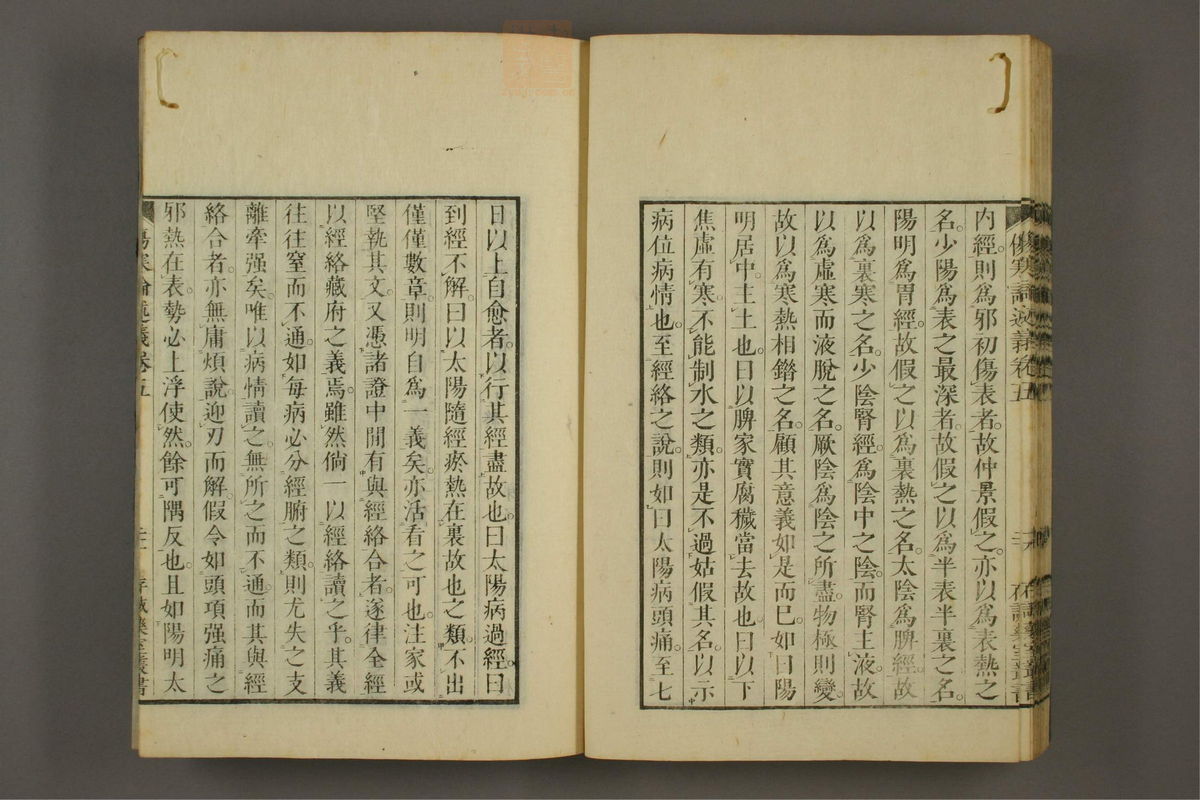 內經則為邪初傷表者故仲景假之亦以為表熱之
名少陽為表之最深者故假之以為半表半裏之名
陽明為胃經故假之以為裏熱之名太陰為脾經故
以為裏寒之名少陰腎經為陰中之陰而腎主液故
以為虛寒而液脫之名厥陰為陰之所盡物極則變
故以為寒熱相錯之名顧其意義如是而已如曰陽
明居中主土也曰以脾家實腐穢當去故也曰以下
焦虛有寒不能制水之類亦是不過姑假其名以示
病位病情也至經絡之說則如曰太陽病頭痛至七
日以上自愈者以行其經盡故也曰太陽病過經曰
到經不解曰以太陽隨經瘀熱在裏故也之類不出
僅僅數章則明自為一義矣亦活看之可也注家或
堅執其文又憑諸證中間有與經絡合者遂律全經
以經絡藏府之義焉雖然倘一以經絡讀之乎其義
往往窒而不通如每病必分經腑之類則尤失之支
離牽强矣唯以病情讀之無所之而不通而其與經
絡合者亦無庸煩說迎刃而解假令如頭項强痛之
邪熱在表勢必上浮使然餘可隅反也且如陽明太
傷寒論述義卷五
存誠藥室叢書